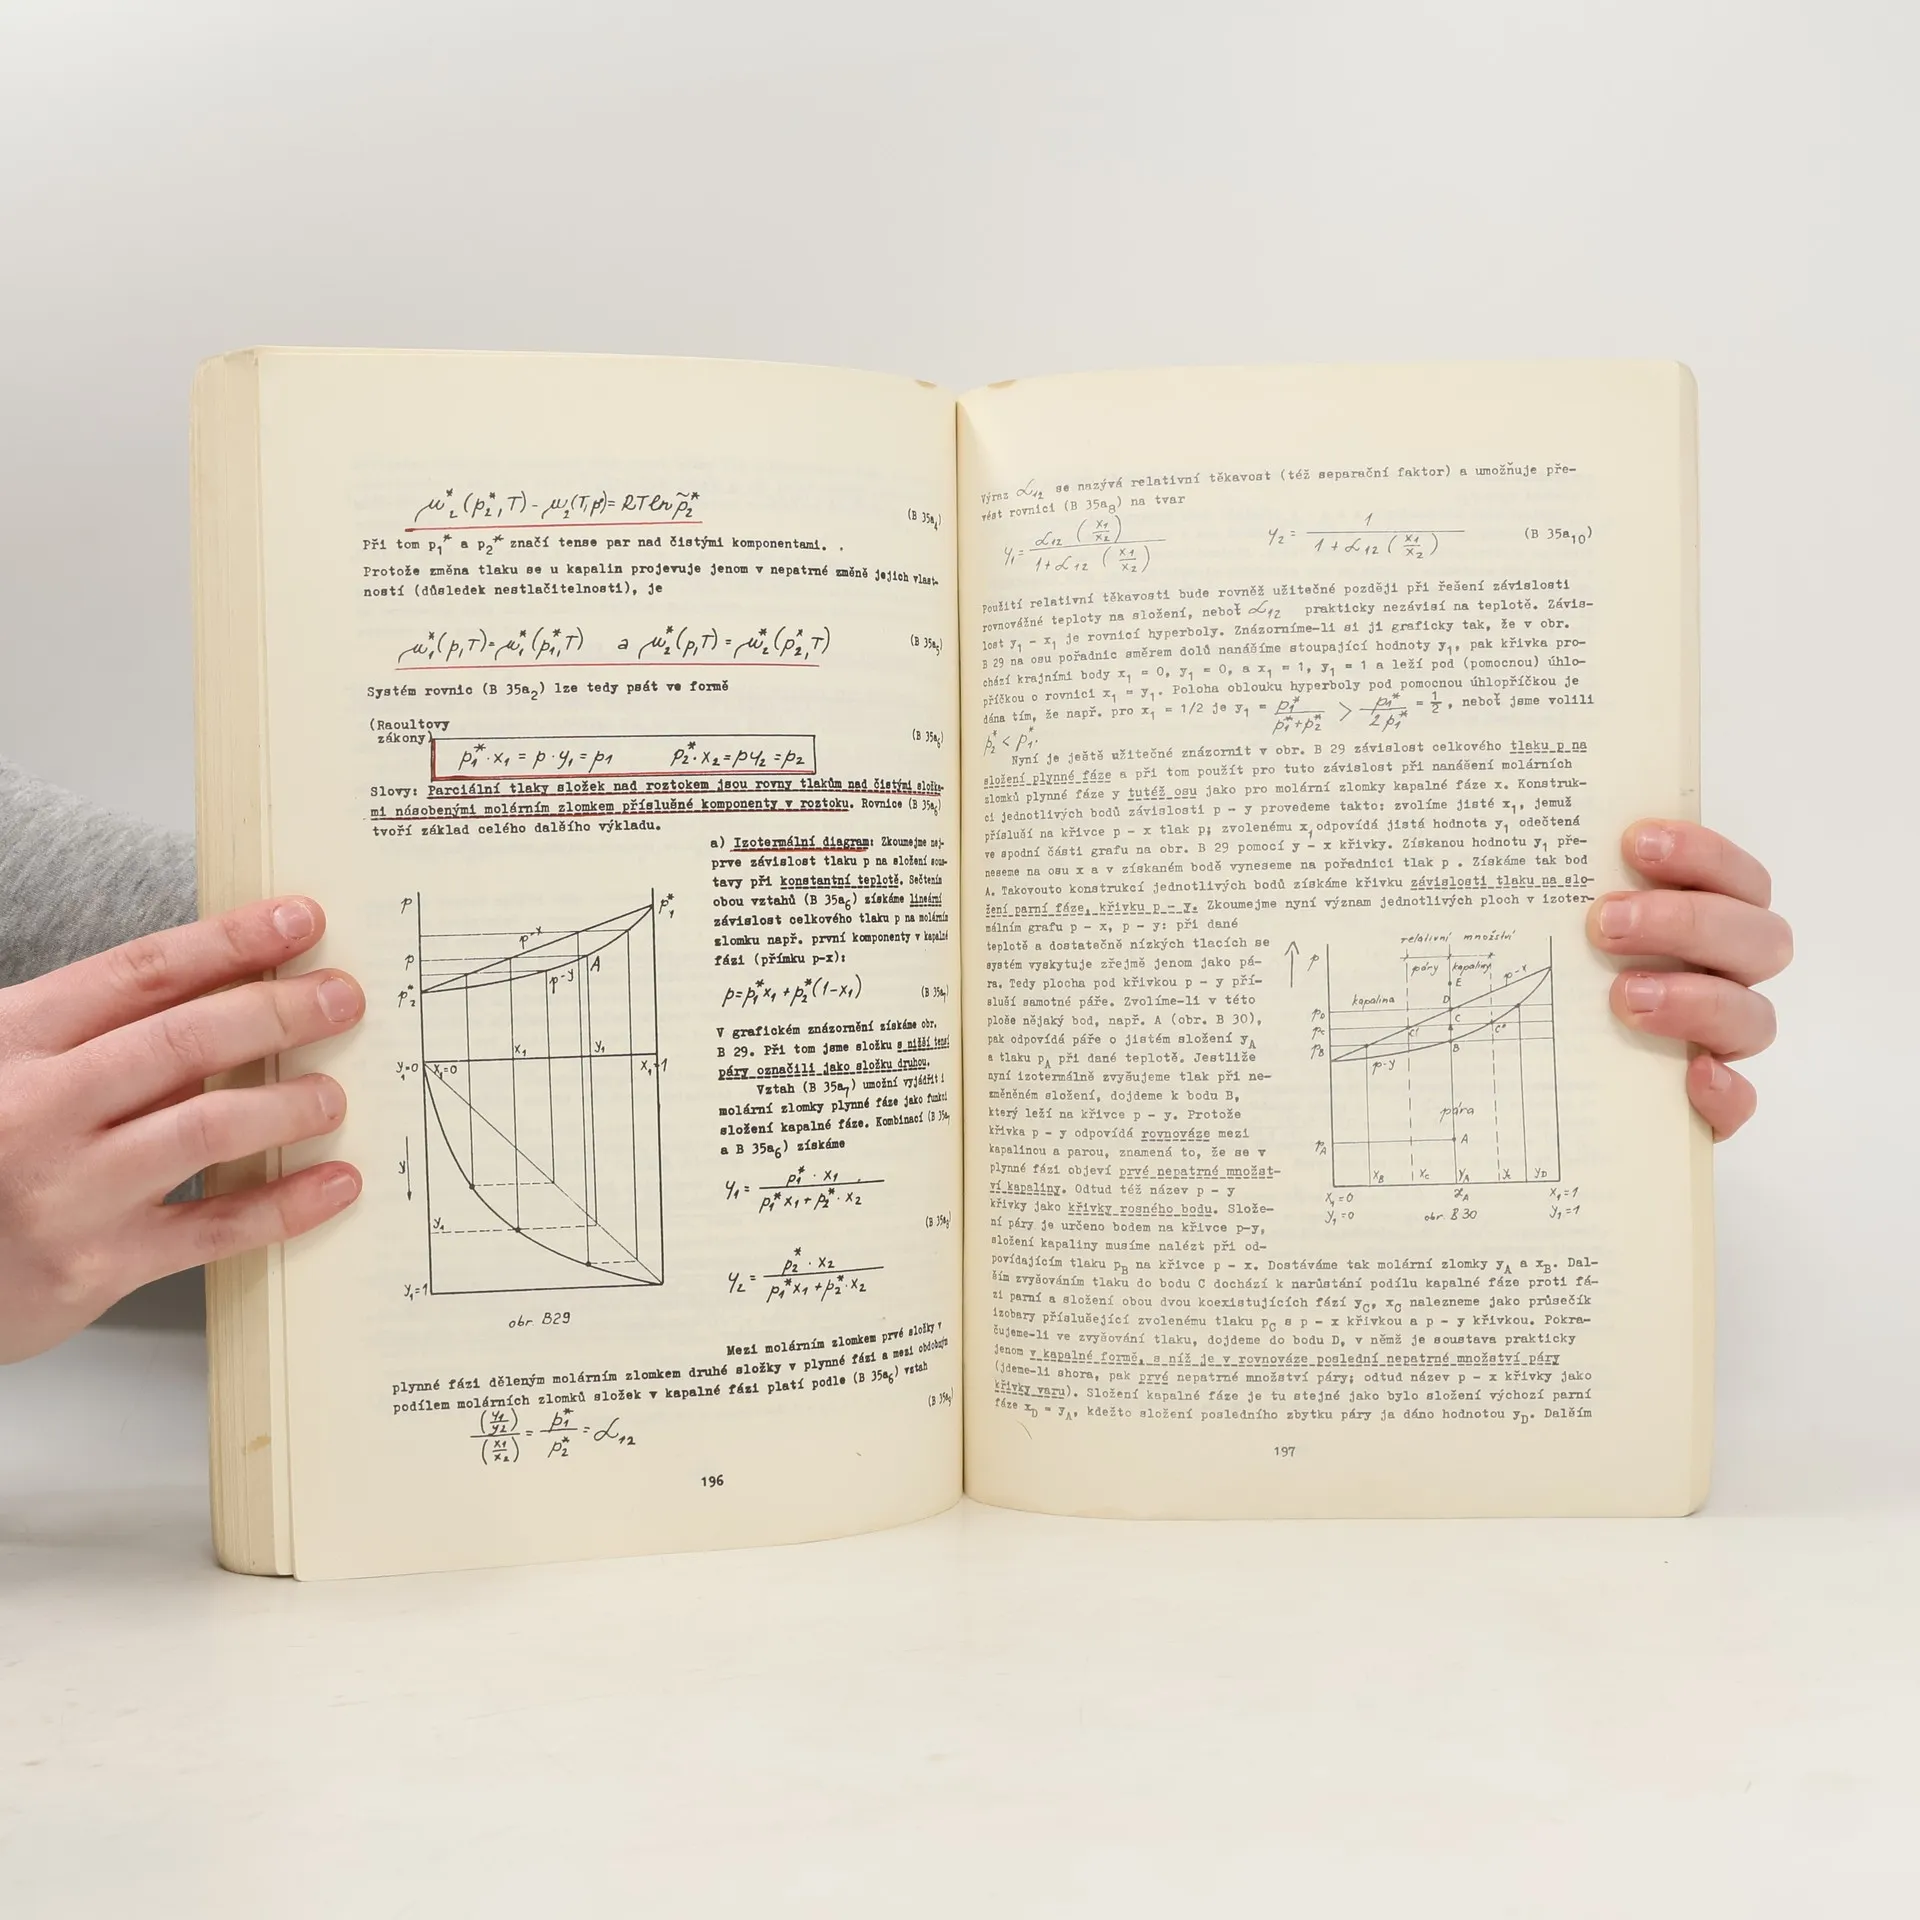 μ*₂(p*₂,T) - μ₂(T,p) = RT ln p̃*₂ (B 35a₄)
Při tom p₁* a p₂* značí tense par nad čistými komponentami.
Protože změna tlaku se u kapalin projevuje jenom v nepatrné změně jejich vlast-
ností (důsledek nestlačitelnosti), je
μ*₁(p,T) = μ*₁(p*₁,T) a μ*₂(p,T) = μ*₂(p*₂,T) (B 35a₅)
Systém rovnic (B 35a₂) lze tedy psát ve formě
(Raoultovy
zákony)
p₁*·x₁ = p·y₁ = p₁ p₂*·x₂ = py₂ = p₂ (B 35a₆)
Slovy: Parciální tlaky složek nad roztokem jsou rovny tlakům nad čistými složka-
mi násobenými molárním zlomkem příslušné komponenty v roztoku. Rovnice (B 35a₆)
tvoří základ celého dalšího výkladu.
a) Izotermální diagram: Zkoumejme nej-
prve závislost tlaku p na složení sous-
tavy při konstantní teplotě. Sečtením
obou vztahů (B 35a₆) získáme lineární
závislost celkového tlaku p na molárním
zlomku např. první komponenty v kapalné
fázi (přímku p-x):
p = p₁*x₁ + p₂*(1-x₁) (B 35a₇)
V grafickém znázornění získáme obr.
B 29. Při tom jsme složku s nižší tensí
páry označili jako složku druhou.
Vztah (B 35a₇) umožní vyjádřit i
molární zlomky plynné fáze jako funkci
složení kapalné fáze. Kombinací (B 35a₇
a B 35a₆) získáme
y₁ = p₁*·x₁ / (p₁*x₁ + p₂*·x₂)
(B 35a₈)
y₂ = p₂*·x₂ / (p₁*x₁ + p₂*·x₂)
p
p₁*
p-x
p
A
p-y
p₂*
x₁ y₁
y₁=0 x₁=0 x₁=1
y
y₁
y₁=1
obr. B29
Mezi molárním zlomkem prvé složky v
plynné fázi děleným molárním zlomkem druhé složky v plynné fázi a mezi obdobným
podílem molárních zlomků složek v kapalné fázi platí podle (B 35a₆) vztah
(y₁/y₂) / (x₁/x₂) = p₁*/p₂* = α₁₂ (B 35a₉)
196
Výraz α₁₂ se nazývá relativní těkavost (též separační faktor) a umožňuje pře-
vést rovnici (B 35a₈) na tvar
y₁ = α₁₂ (x₁/x₂) / (1 + α₁₂ (x₁/x₂)) y₂ = 1 / (1 + α₁₂ (x₁/x₂)) (B 35a₁₀)
Použití relativní těkavosti bude rovněž užitečné později při řešení závislosti
rovnovážné teploty na složení, neboť α₁₂ prakticky nezávisí na teplotě. Závis-
lost y₁ - x₁ je rovnicí hyperboly. Znázorníme-li si ji graficky tak, že v obr.
B 29 na osu pořadnic směrem dolů nanášíme stoupající hodnoty y₁, pak křivka pro-
chází krajními body x₁ = 0, y₁ = 0, a x₁ = 1, y₁ = 1 a leží pod (pomocnou) úhlo-
příčkou o rovnici x₁ = y₁. Poloha oblouku hyperboly pod pomocnou úhlopříčkou je
dána tím, že např. pro x₁ = 1/2 je y₁ = p₁*/(p₁*+p₂*) > p₁*/(2p₁*) = 1/2, neboť jsme volili
p₂* < p₁*.
Nyní je ještě užitečné znázornit v obr. B 29 závislost celkového tlaku p na
složení plynné fáze a při tom použít pro tuto závislost při nanášení molárních
zlomků plynné fáze y tutéž osu jako pro molární zlomky kapalné fáze x. Konstruk-
ci jednotlivých bodů závislosti p - y provedeme takto: zvolíme jisté x₁, jemuž
přísluší na křivce p - x tlak p; zvolenému x₁ odpovídá jistá hodnota y₁ odečtená
ve spodní části grafu na obr. B 29 pomocí y - x křivky. Získanou hodnotu y₁ pře-
neseme na osu x a v získaném bodě vyneseme na pořadnici tlak p . Získáme tak bod
A. Takovouto konstrukcí jednotlivých bodů získáme křivku závislosti tlaku na slo-
žení parní fáze, křivku p - y. Zkoumejme nyní význam jednotlivých ploch v izoter-
málním grafu p - x, p - y: při dané
teplotě a dostatečně nízkých tlacích se
systém vyskytuje zřejmě jenom jako pá-
ra. Tedy plocha pod křivkou p - y pří-
sluší samotné páře. Zvolíme-li v této
ploše nějaký bod, např. A (obr. B 30),
pak odpovídá páře o jistém složení y_A
a tlaku p_A při dané teplotě. Jestliže
nyní izotermálně zvyšujeme tlak při ne-
změněném složení, dojdeme k bodu B,
který leží na křivce p - y. Protože
křivka p - y odpovídá rovnováze mezi
kapalinou a parou, znamená to, že se v
plynné fázi objeví prvé nepatrné množst-
ví kapaliny. Odtud též název p - y
křivky jako křivky rosného bodu. Slože-
ní páry je určeno bodem na křivce p-y,
složení kapaliny musíme nalézt při od-
povídajícím tlaku p_B na křivce p - x. Dostáváme tak molární zlomky y_A a x_B. Dal-
ším zvyšováním tlaku do bodu C dochází k narůstání podílu kapalné fáze proti fá-
zi parní a složení obou dvou koexistujících fází y_C, x_C nalezneme jako průsečík
izobary příslušející zvolenému tlaku p_C s p - x křivkou a p - y křivkou. Pokra-
čujeme-li ve zvyšování tlaku, dojdeme do bodu D, v němž je soustava prakticky
jenom v kapalné formě, s níž je v rovnováze poslední nepatrné množství páry
(jdeme-li shora, pak prvé nepatrné množství páry; odtud název p - x křivky jako
křivky varu). Složení kapalné fáze je tu stejné jako bylo složení výchozí parní
fáze x_D = y_A, kdežto složení posledního zbytku páry ja dáno hodnotou y_D. Dalším
relativní množství
p páry kapaliny
p-x
E
kapalina D
p_D
C
p_C C' C"
p_B B
p-y
pára
p_A A
x_B x_C y_A y_D
x₁=0 x_A x₁=1
y₁=0 obr. B30 y₁=1
197